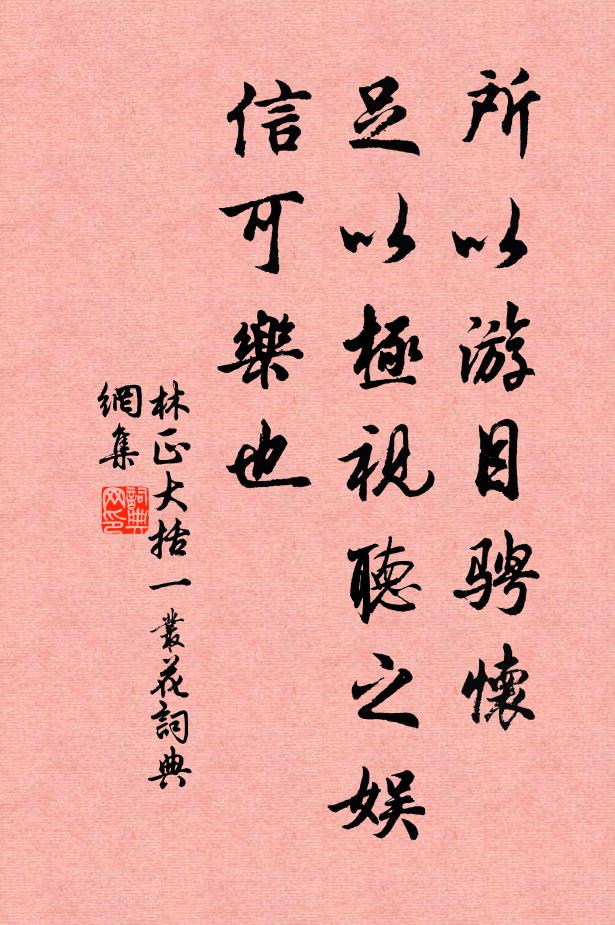 所以游目騁懷
足以極視聽之娛
信可樂也
林正大括一叢花詞典
網集
詞典
网印